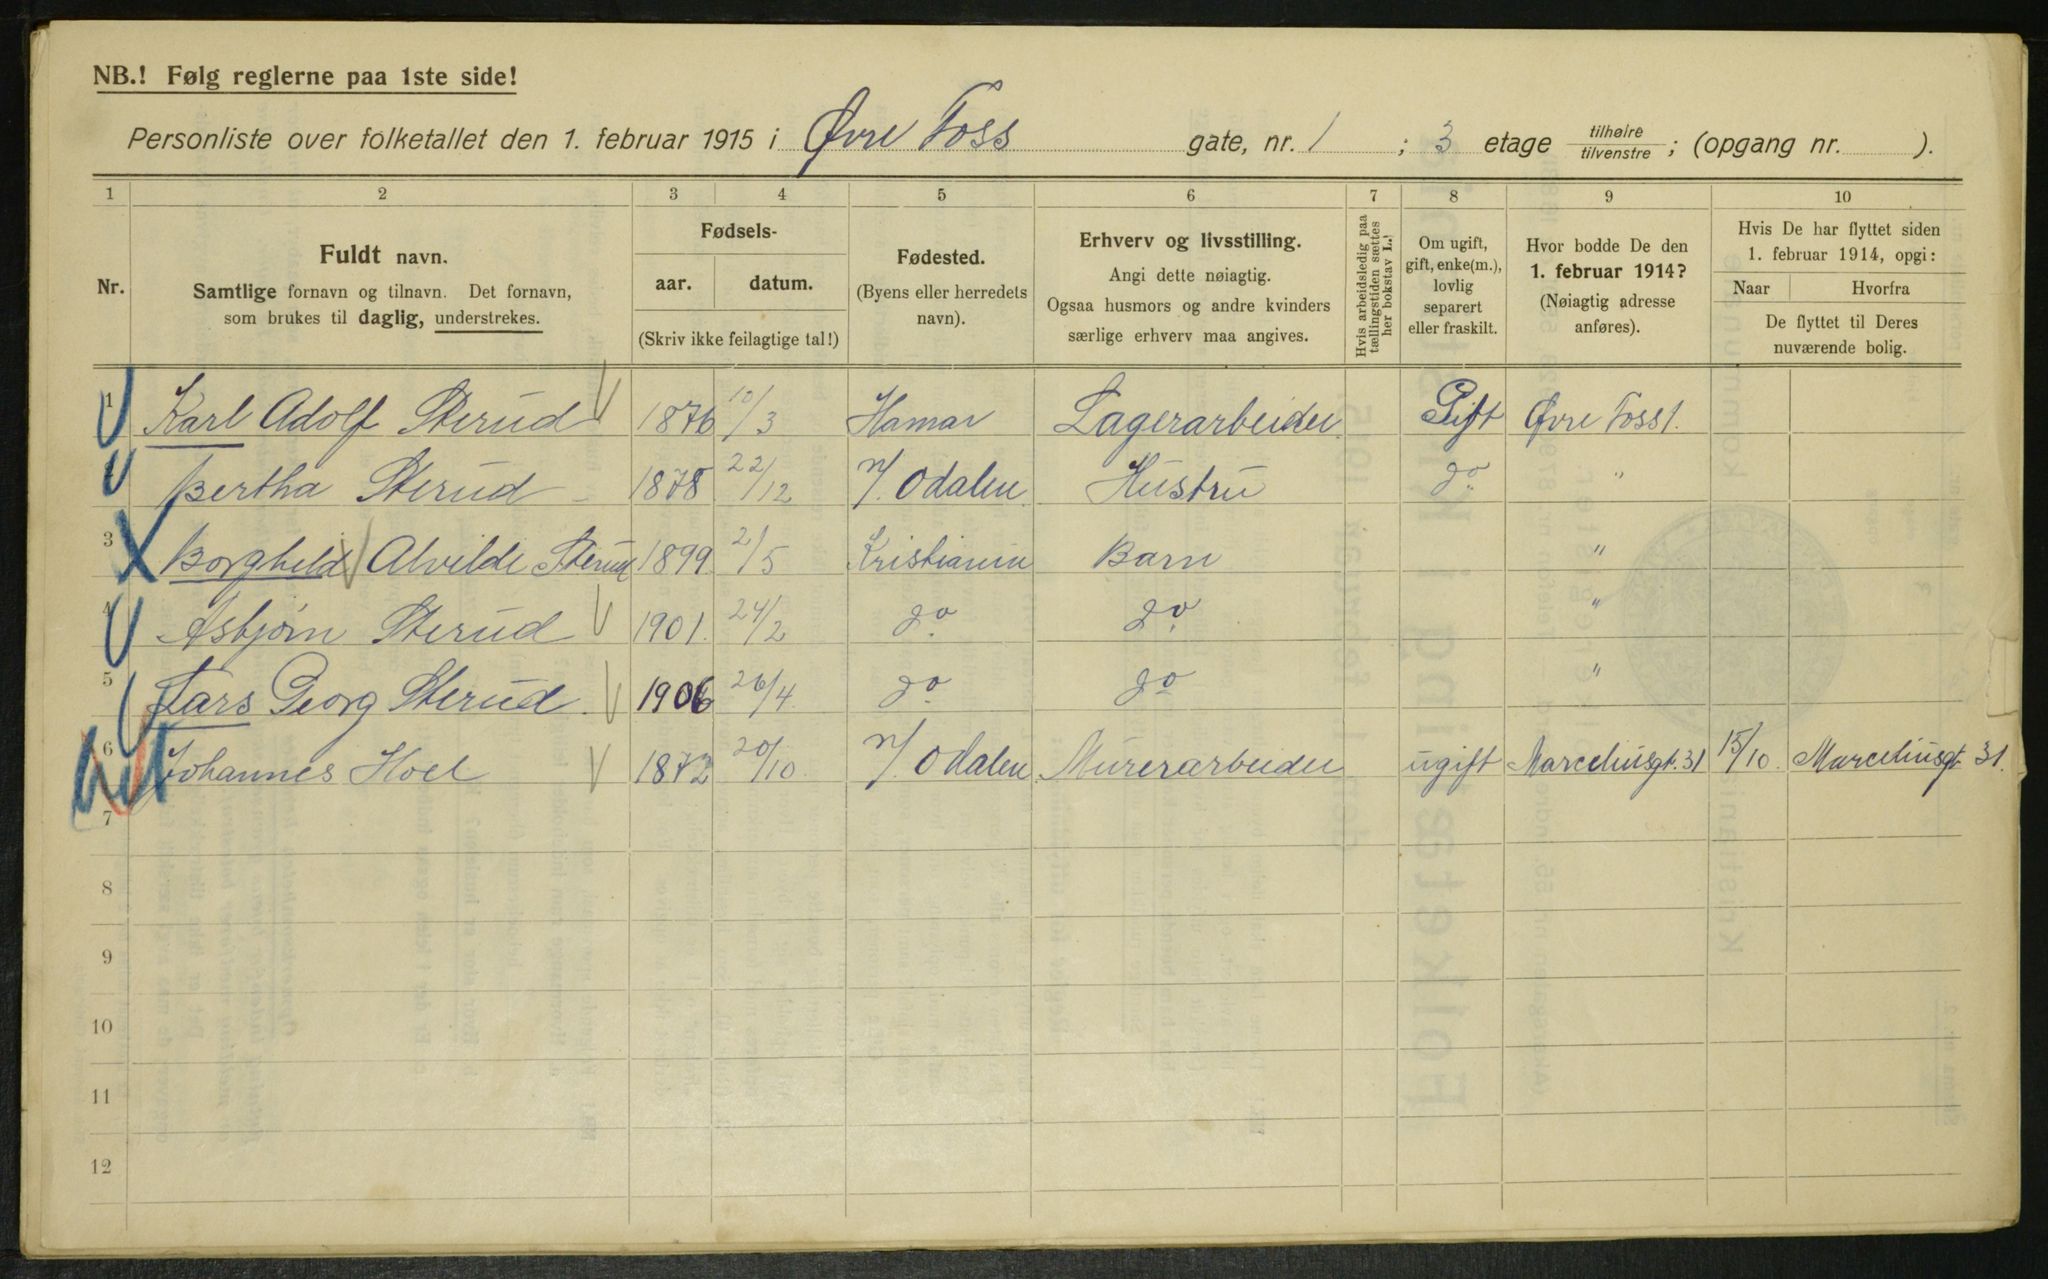 NB.! Følg reglerne paa 1ste side!
Personliste over folketallet den 1. februar 1915 i Øvre Foss gate, nr. 1 ; 3 etage tilhøire tilvenstre ; (opgang nr. ).
1 2 3 4 5 6 7 8 9 10
Nr.
Fuldt navn.
Samtlige fornavn og tilnavn. Det fornavn,
som brukes til daglig, understrekes.
Fødsels-
aar. datum.
(Skriv ikke feilagtige tal!)
Fødested.
(Byens eller herredets
navn).
Erhverv og livsstilling.
Angi dette nøiagtig.
Ogsaa husmors og andre kvinders
særlige erhverv maa angives.
Hvis arbeidsledig paa
tællingstiden sættes
her bokstav L.
Om ugift,
gift, enke(m.),
lovlig
separert
eller fraskilt.
Hvor bodde De den
1. februar 1914?
(Nøiagtig adresse
anføres).
Hvis De har flyttet siden
1. februar 1914, opgi:
Naar Hvorfra
De flyttet til Deres
nuværende bolig.
1 Karl Adolf Sterud 1876 10/3 Hamar Lagerarbeider. Gift Øvre Foss 1.
Bertha Sterud 1878 22/12 N/. Odalen. Hustru do "
3 Borghild Alvilde Sterud 1899 2/5 Kristiania Barn "
4 Asbjørn Sterud 1901. 24/2 do do "
5 Lars Georg Sterud 1906 26/4 do do "
6 Johannes Hoel 1872 20/10 N/. Odalen Murerarbeider ugift Marceliusgt. 31 15/10. Marceliusgt 31.
7
8
9
10
11
12